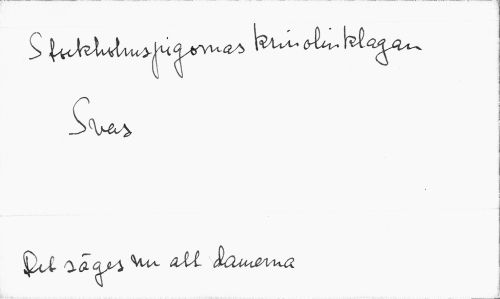 Stockholmspigornas krinolinklagan
Svar
Det säges nu att damerna